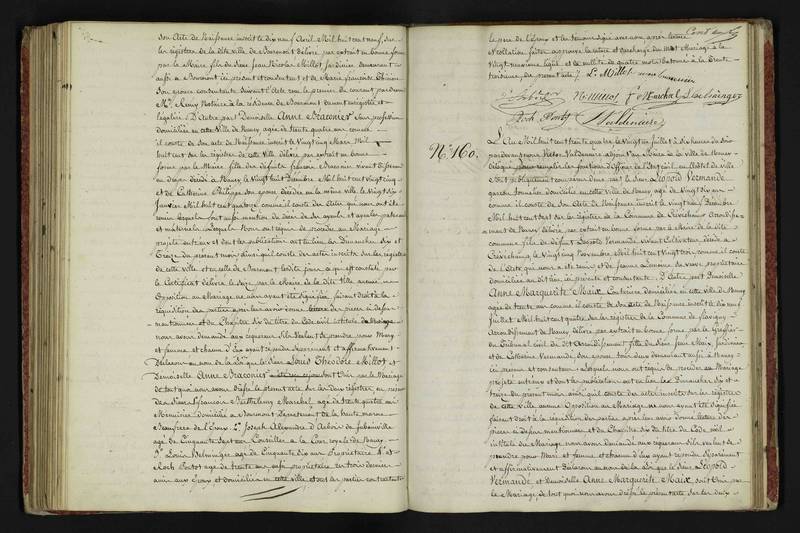 son Acte de Naissance inscrit le dix neuf Avril Mil huit cent neuf, sur
les registres de la dite ville de Bourmont délivré par extrait en bonne forme
par le Maire fils de Sieur Jean Nicolas Millot Jardinier demeurant
aussi à Bourmont ici présent et consentant et de Marie Françoise
son épouse consentante suivant Acte reçu le premier du courant pardevant
Me Remy Notaire à la résidence de Bourmont dument enregistré et
légalisé. D'autre part Demoiselle Anne Braconier sans profession
domiciliée en cette Ville de Nancy agée de trente quatre ans comme
il conste de son Acte de Naissance inscrit le Vingt Mars Mil
huit cent sur les registres de cette Ville délivré par extrait en bonne
forme par le Maire fille des défunts Braconier vivant
décédé à Nancy le Vingt huit Décembre Mil huit cent vingt cinq
et de Catherine Philippe son épouse décédée en la même ville le Vingt dix
Janvier Mil huit cent quatorze comme il conste des Actes qui nous ont été
remis lesquels font aussi mention du décès de ses ayeuls et ayeules paternels
et maternels Lesquels Nous ont requis de procéder au Mariage
projeté entr'eux et dont les publications ont eu lieu les Dimanches six et
Treize du présent mois ainsi qu'il conste des actes inscrits sur les registres
de cette ville et en celle de Bourmont lesdits jours ce qui est constaté par
le Certificat délivré le seize par le Maire de la dite Ville aucune
Opposition au Mariage ne nous ayant été Signifiée faisant droit à la
réquisition des parties après leur avoir donné lecture des pièces ci dessus
mentionnées et du Chapitre six du titre du Code civil intitulé du Mariage
Nous avons demandé aux requérans s'ils veulent se prendre pour Mary
et femme et chacun d'eux ayant répondu séparément et affirmativement
Déclarons au nom de la Loi que le Sieur Louis Théodore Millot et
Demoiselle Anne Braconier sont Unis par le Mariage
de tout quoi nous avons dressé le présent acte sur les deux registres en présence
des Sieurs 1° François Barthelemy Marchal agé de trente quatre ans
domicilié à Bourmont Département de la haute marne
Beau frère de l'Epoux 2° Joseph Alexandre d'Arbois de Jubainville
agé de Cinquante sept ans Conseiller à la Cour royale de Nancy
3° Louis Belminger agé de Cinquante six ans Propriétaire 4° et
Roch Pontot agé de trente six ans propriétaire ces trois derniers
amis aux époux et domiciliés en cette ville et ont les parties contractantes
le père de l'époux et les témoins signé avec nous après lecture
et collation faites
Vingt neuvième ligne et de nullité de quatre mots
du présent acte
L. Millot
D'Arbois
F. Marchal
Roch Pontot
Waldenaire
N° 160.
L'An Mil huit cent trente quatre le Vingt un Juillet à dix heures du Soir
pardevant nous Victor Waldenaire adjoint au Maire de la Ville de Nancy
délégué pour remplir les fonctions d'officier de l'Etat civil en l'hôtel de ville
et Salle publiquement comparurent d'une part le Sieur Léopold Vermande
garçon Sommelier domicilié en cette ville de Nancy agé de Vingt six ans
comme il conste de son Acte de Naissance inscrit le vingt un Décembre
Mil huit cent sept sur les registres de la Commune de Crévéchamps Arrondisse-
ment de Nancy délivré par extrait en bonne forme par le Maire de la dite
commune fils de défunt Léopold Vermande vivant Cultivateur décédé à
Crévéchamps le Vingt cinq Novembre Mil huit cent vingt trois comme il conste
de l'Acte qui nous a été remis et de Jeanne sa veuve propriétaire
domiciliée au dit lieu ici présente et consentante. D'autre part Demoiselle
Anne Marguerite Maix Couturière domiciliée en cette ville de Nancy
agée de trente ans comme il conste de son Acte de Naissance inscrit le dix neuf
Juillet Mil huit cent quatre sur les registres de la Commune de Flavigny
Arrondissement de Nancy délivré par extrait en bonne forme par le Greffier
du Tribunal civil du dit Arrondissement fille du Sieur Jean Maix
et de Catherine Vermande son épouse tous deux demeurant aussi à Nancy
ici présens et consentans. Lesquels nous ont requis de procéder au Mariage
projeté entr'eux et dont les publications ont eu lieu les Dimanches six et
treize du présent mois ainsi qu'il conste des actes inscrits sur les registres
de cette Ville aucune Opposition au Mariage ne nous ayant été Signifiée
faisant droit à la réquisition des parties après leur avoir donné lecture des
pièces ci dessus mentionnées et du Chapitre six du titre du Code civil
intitulé du Mariage nous avons demandé aux requérans s'ils veulent se
prendre pour Mari et femme et chacun d'eux ayant répondu séparément
et affirmativement Déclarons au nom de la Loi que le Sieur Léopold
Vermande, et Demoiselle Anne Marguerite Maix sont Unis par
le Mariage, de tout quoi nous avons dressé le présent acte sur les deux